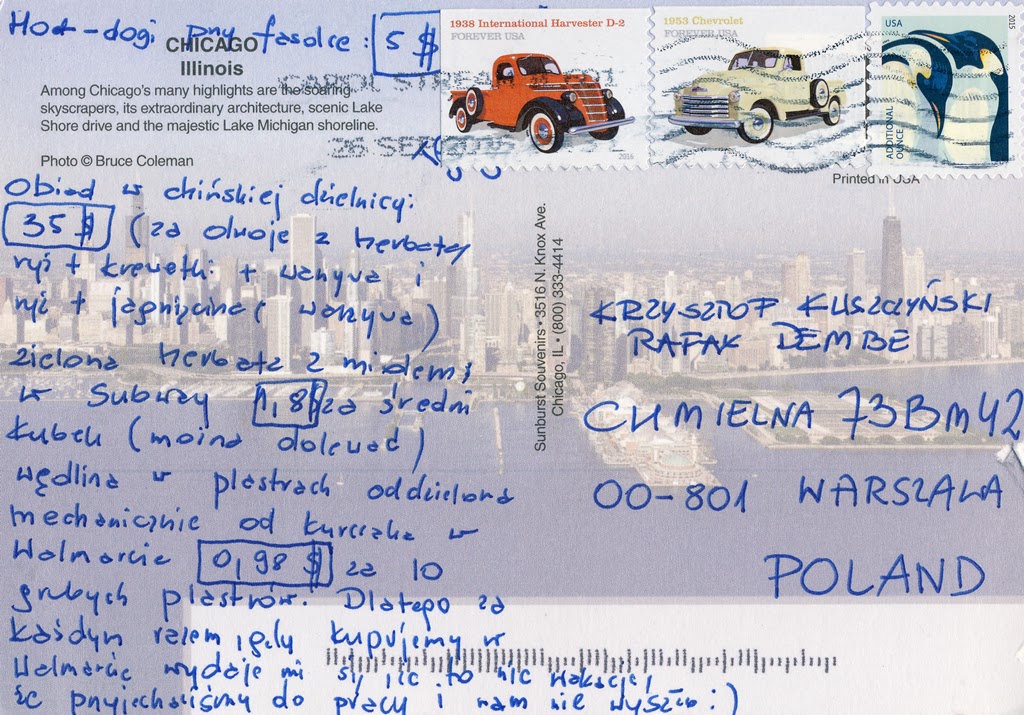 Hot-dogi przy fasolce: 5 $
CHICAGO
Illinois
Among Chicago's many highlights are the soaring
skyscrapers, its extraordinary architecture, scenic Lake
Shore drive and the majestic Lake Michigan shoreline.
Photo © Bruce Coleman
1938 International Harvester D-2
FOREVER USA
2016
1953 Chevrolet
FOREVER USA
USA
2015
ADDITIONAL
OUNCE
CAROL
Printed in USA
Sunburst Souvenirs • 3516 N. Knox Ave.
Chicago, IL • (800) 333-4414
Obiad w chińskiej dzielnicy:
35 $ (za dwoje z herbatą
ryż + krewetki + warzywa i
ryż + jagnięcina (warzywa)
zielona herbata z miodem;
w Subway 1,8$ za średni
kubek (można dolewać)
wędlina w plastrach oddzielona
mechanicznie od kurczaka w
Walmarcie 0,98 $ za 10
grubych plastrów. Dlatego za
każdym razem, gdy kupujemy w
Walmarcie wydaje mi się, że to nie wakacje,
że przyjechaliśmy do pracy i nam nie wyszło :)
KRZYSZTOF KUSZCZYŃSKI
RAFAŁ DEMBE
CHMIELNA 73B m 42
00-801 WARSZAWA
POLAND